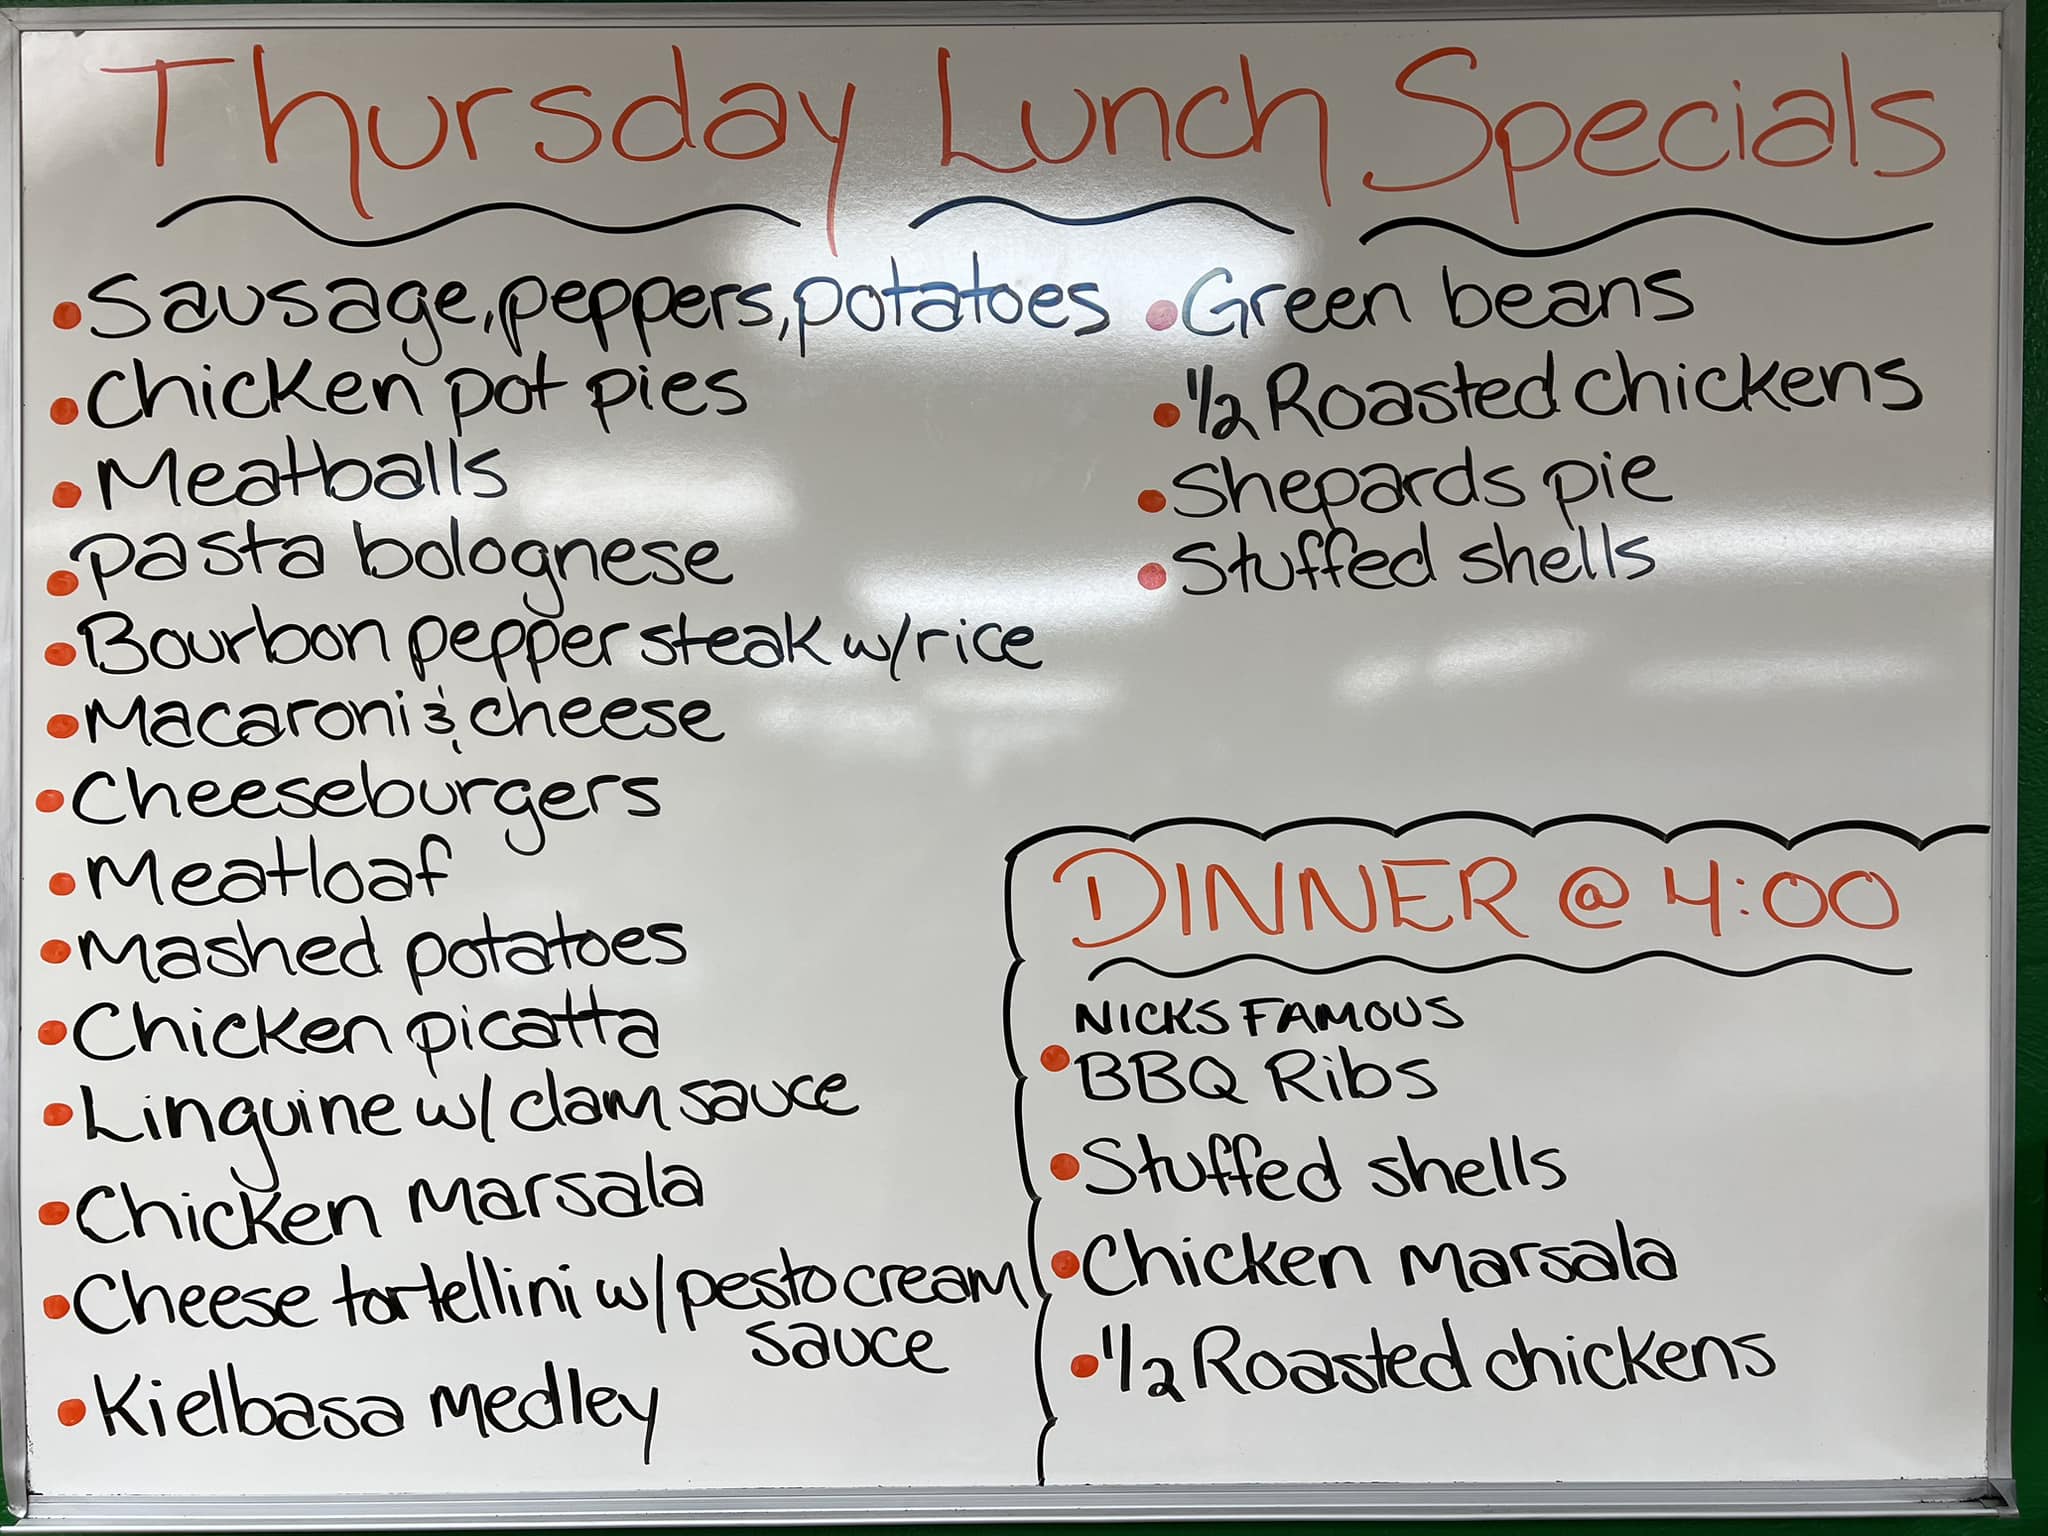 Thursday Lunch Specials
•Sausage, peppers, potatoes
•Chicken pot pies
•Meatballs
•Pasta bolognese
•Bourbon pepper steak w/rice
•Macaroni & cheese
•Cheeseburgers
•Meatloaf
•Mashed potatoes
•Chicken picatta
•Linguine w/ clam sauce
•Chicken Marsala
•Cheese tortellini w/ pesto cream
sauce
•Kielbasa medley
•Green beans
•1/2 Roasted chickens
•Shepards pie
•Stuffed shells
DINNER @ 4:00
NICKS FAMOUS
•BBQ Ribs
•Stuffed shells
•Chicken Marsala
•1/2 Roasted chickens